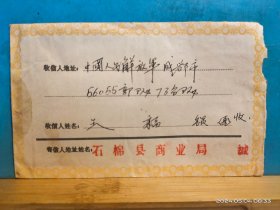 收信人地址: 中國人民解放軍成都市
56055部隊73分隊
收信人姓名: 王 福 收
寄信人地址姓名: 石棉县商业局 缄
2024.05.04 08:02:33